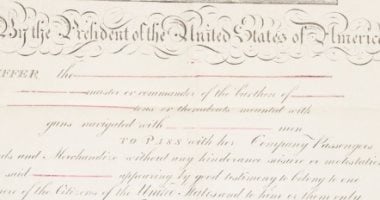 By the President of the United States of America
SUFFER the
master or commander of the burthen of
tons or thereabouts mounted with
guns navigated with men
TO PASS with her Company Passengers
Goods and Merchandize without any hinderance seisure or molestation
said appearing by good testimony to belong to one
more of the Citizens of the United States and to him or them only